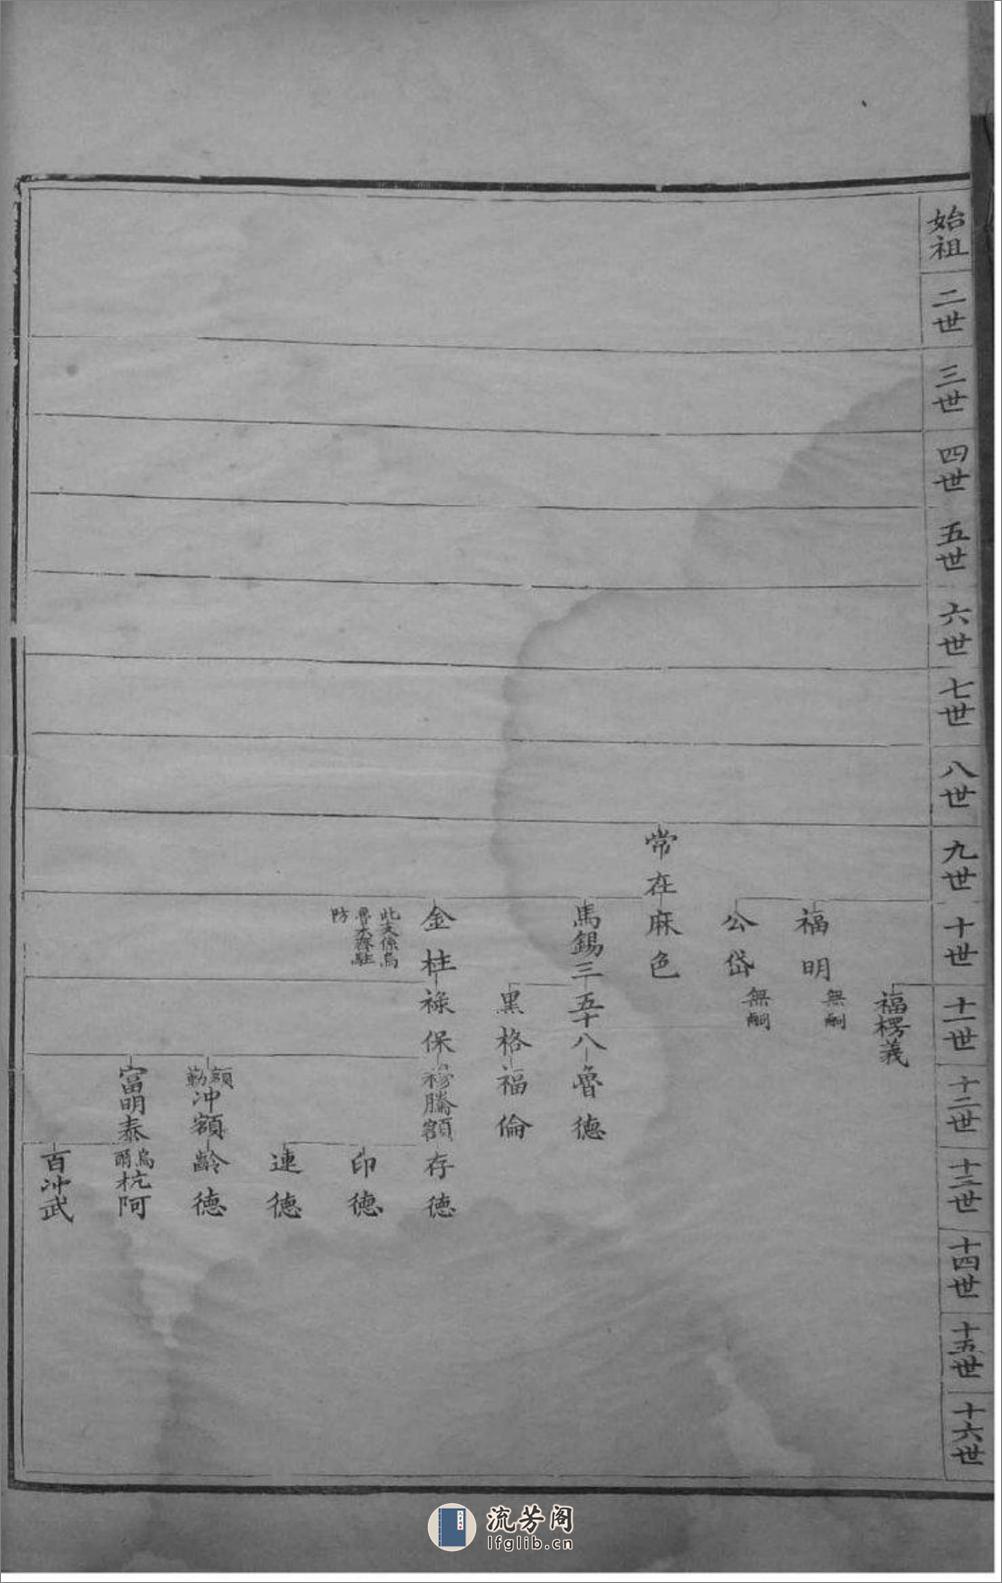 始祖
二世
三世
四世
五世
六世
七世
八世
九世
十世
十一世
十二世
十三世
十四世
十五世
十六世
福楞義
福明
無嗣
公岱
無嗣
常在
麻色
馬錫三
五十八
魯德
黑格
福倫
金柱
祿保
穆騰額
存德
此支係烏
魯木齊駐
防
印德
連德
額勒
冲額
齡德
富明泰
烏爾
杭阿
百冲武
流芳阁
lfglib.cn